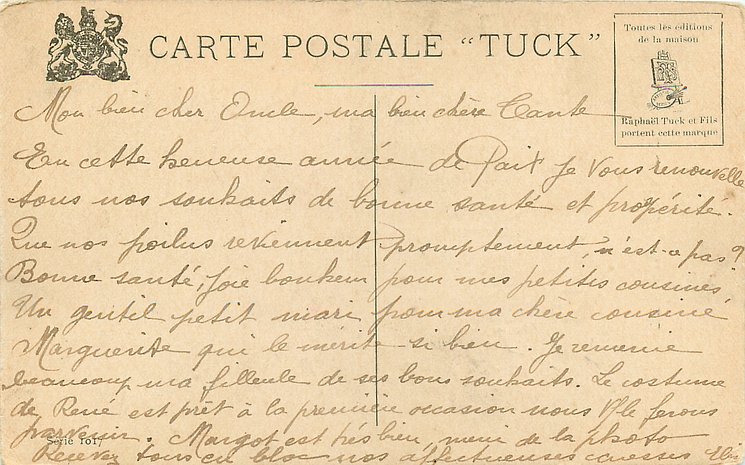 CARTE POSTALE "TUCK"
Toutes les éditions
de la maison
Raphaël Tuck et Fils
portent cette marque
Mon bien cher Oncle, ma bien chère Tante
En cette heureuse année de Paix je vous renouvelle
tous nos souhaits de bonne santé et propérité.
Que nos poilus reviennent promptement, n'est-ce pas?
Bonne santé, joie bonheur pour mes petites cousines,
Un gentil petit mari pour ma chère cousine
Marguerite qui le mérite si bien. Je remercie
beaucoup ma filleule de ses bons souhaits. Le costume
de René est prêt à la première occasion nous le ferons
parvenir. Margot est très bien, merci de la photo
Série 101
Recevez tous en bloc nos affectueuses caresses